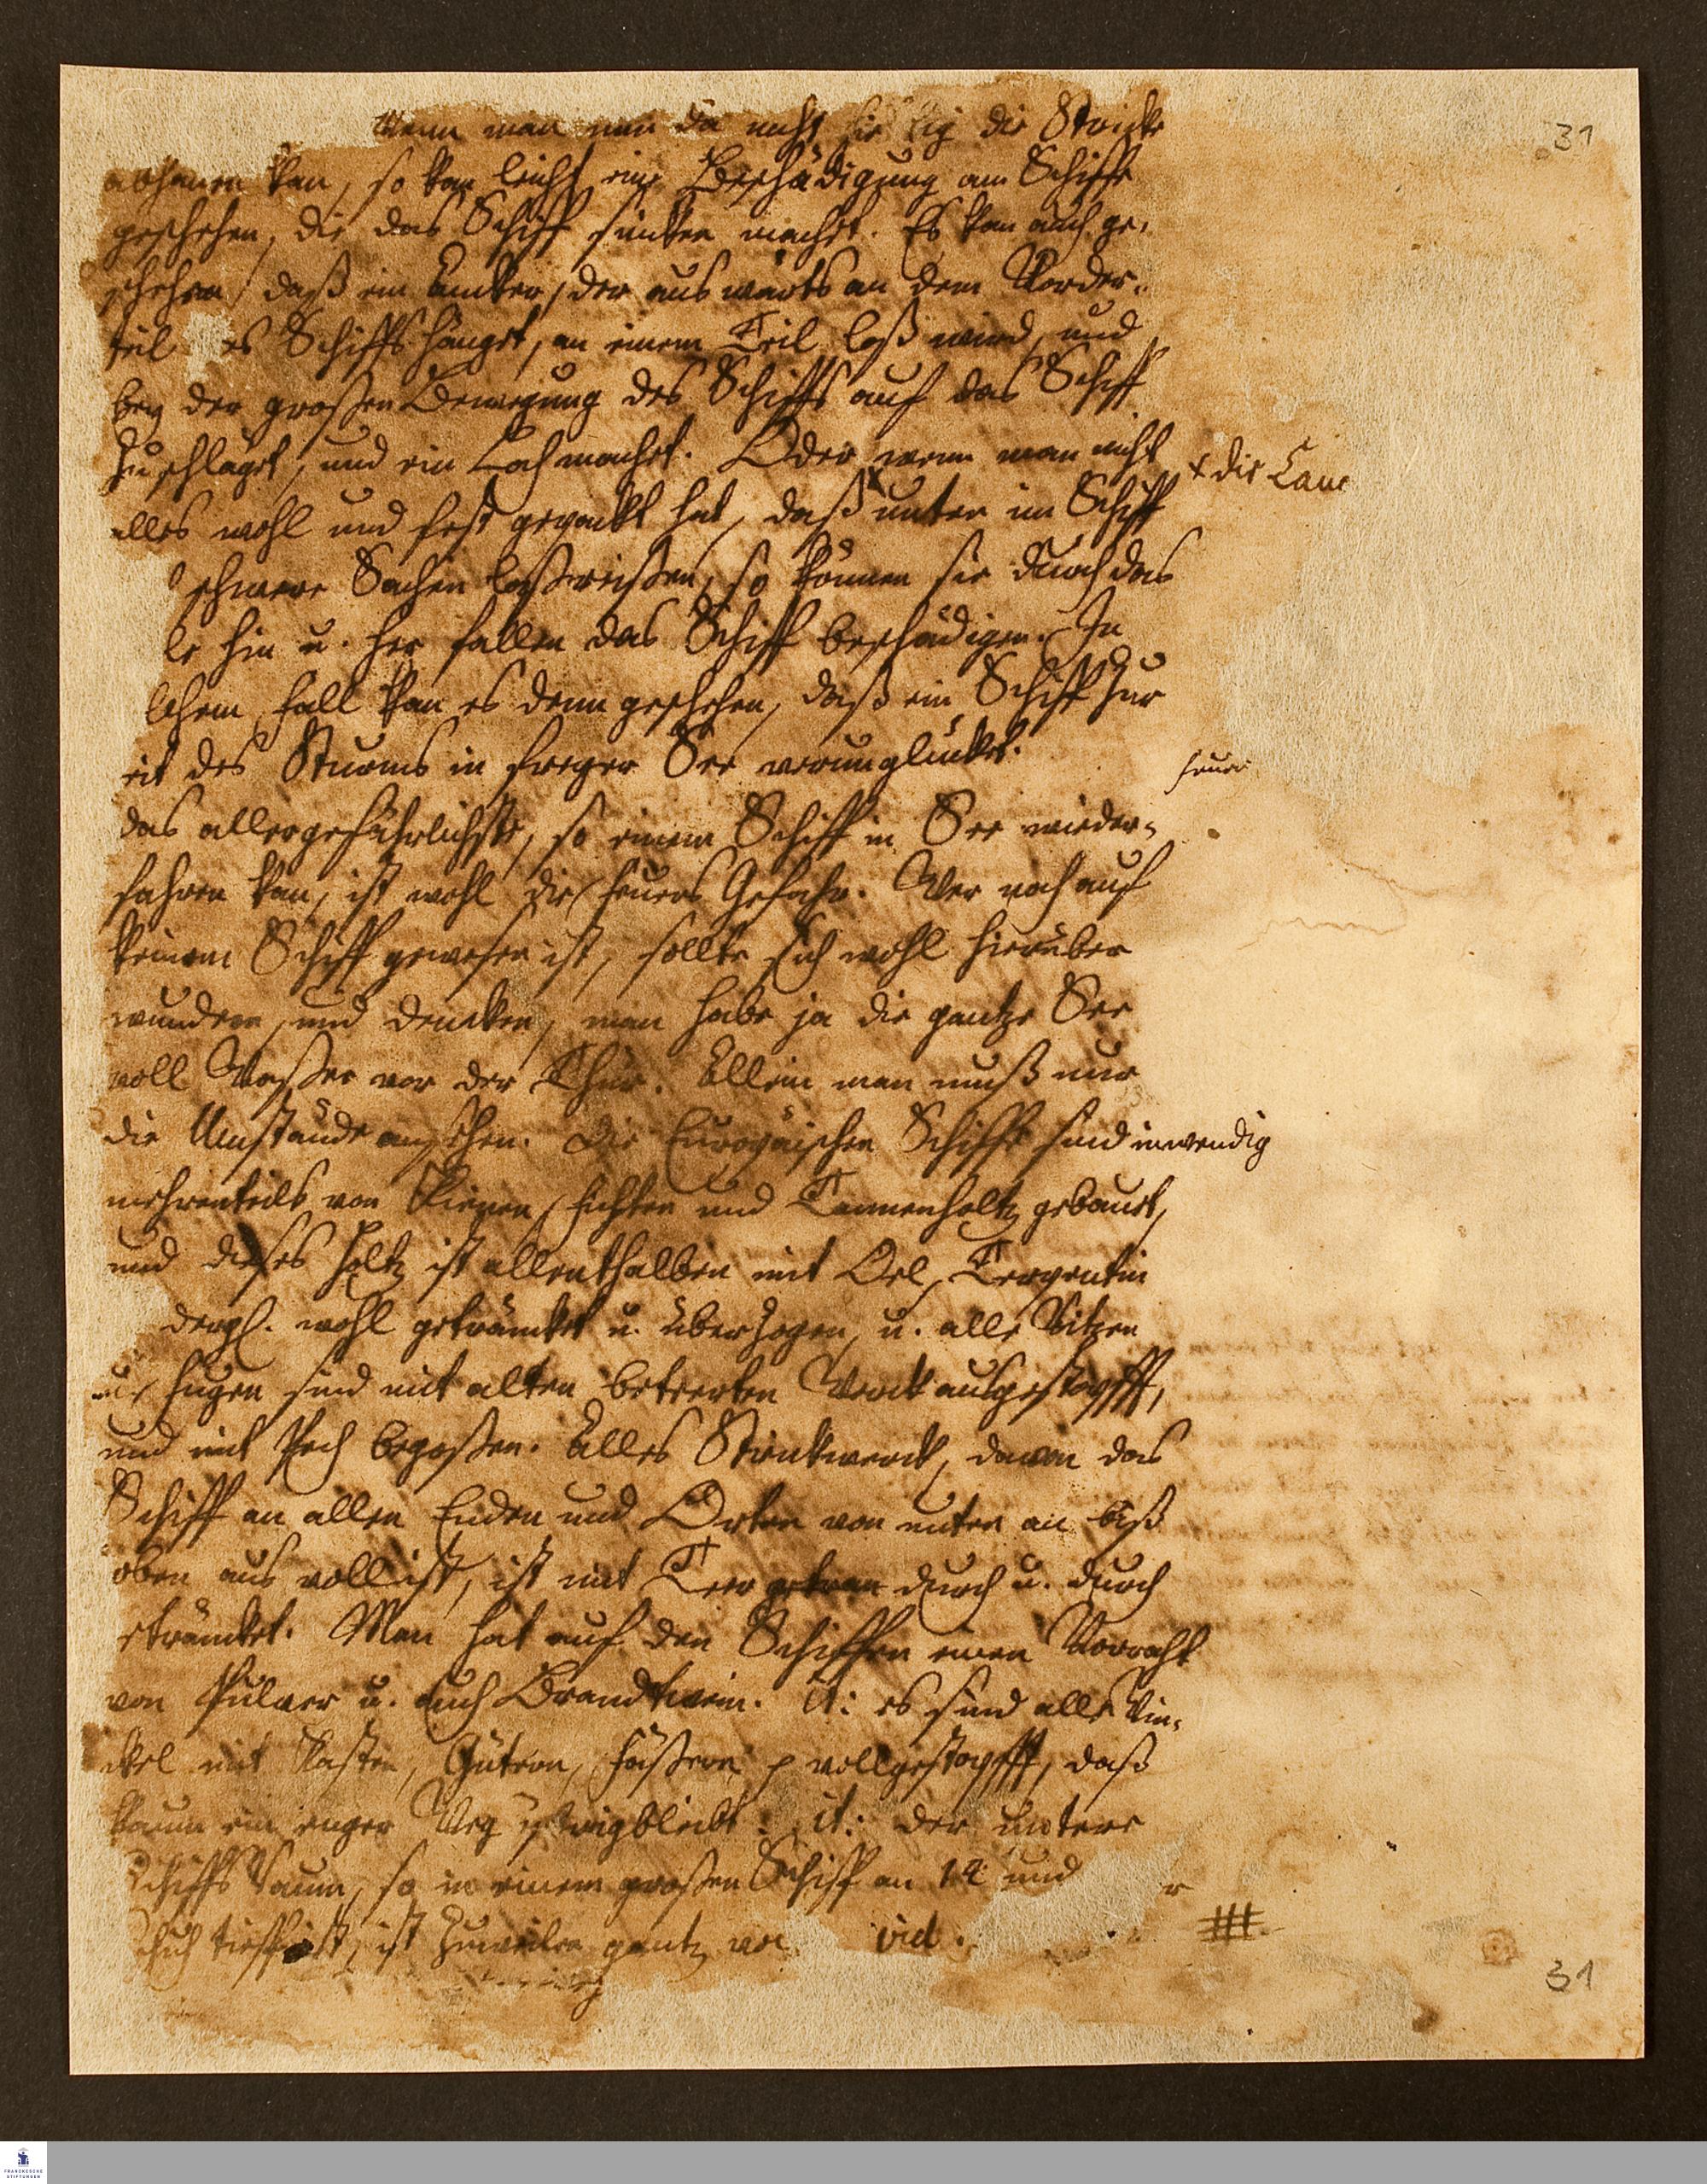 31
Wenn man nun da nicht die Stricke
abhauen kan, so kan leicht eine Beschädigung am Schiffe
geschehen, die das Schiff sincken machet. Es kan auch ge-
schehen, daß ein Ancker, der auswärts an dem Vorder-
teil es Schiffs hänget, an einem Teil loß wird, und
bey der großen Bewegung des Schiffs auf das Schiff
zuschläget, und ein Loch machet. Oder wenn man nicht
+ die Lam
alles wohl und fest gepackt hat, daß + unten im Schiff
schwere Sachen loßreißen, so können sie durch das
le hin u. her fallen das Schiff beschädigen. In
lchem Fall kan es denn geschehen, daß ein Schiff zur
eit des Sturms in freyer See verunglücket.
Feuer
das allergefährlichste, so einem Schiff in See wieder-
fahren kan, ist wohl die Feuers Gefahr. Wer noch auf
keinem Schiff gewesen ist, sollte sich wohl hierüber
wundern, und dencken, man habe ja die gantze See
voll Waßer vor der Thür. Allein man muß nur
die Umstände ansehen. Die Europäischen Schiffe sind inwendig
mehrenteils von Kienen, Fichten und Tannenholtz gebauet,
und dieses Holtz ist allenthalben mit Oel, Terpentin
dergl. wohl geträncket u. überzogen, u. alle Ritzen
u. Fugen sind mit alten beteerten Werck ausgestopfft,
und mit Pech begoßen. Alles Strickwerck, davon das
Schiff an allen Enden und Orten von unten an biß
oben aus voll ist, ist mit Teer durch u. durch
eträncket. Man hat auf den Schiffen einen Vorraht
von Pulver u. auch Brandtwein. it: es sind alle Win-
ckel mit Kasten, Gütern, Fäßern p vollgestopfft, daß
kaum ein enger Weg übrig bleibt. it: der untere
Schiffs Raum, so in einem großen Schiff an 14 und
r
Schuh tieff ist, ist zuweilen gantz vo vid.
#
31
FRANCKESCHE
STIFTUNGEN